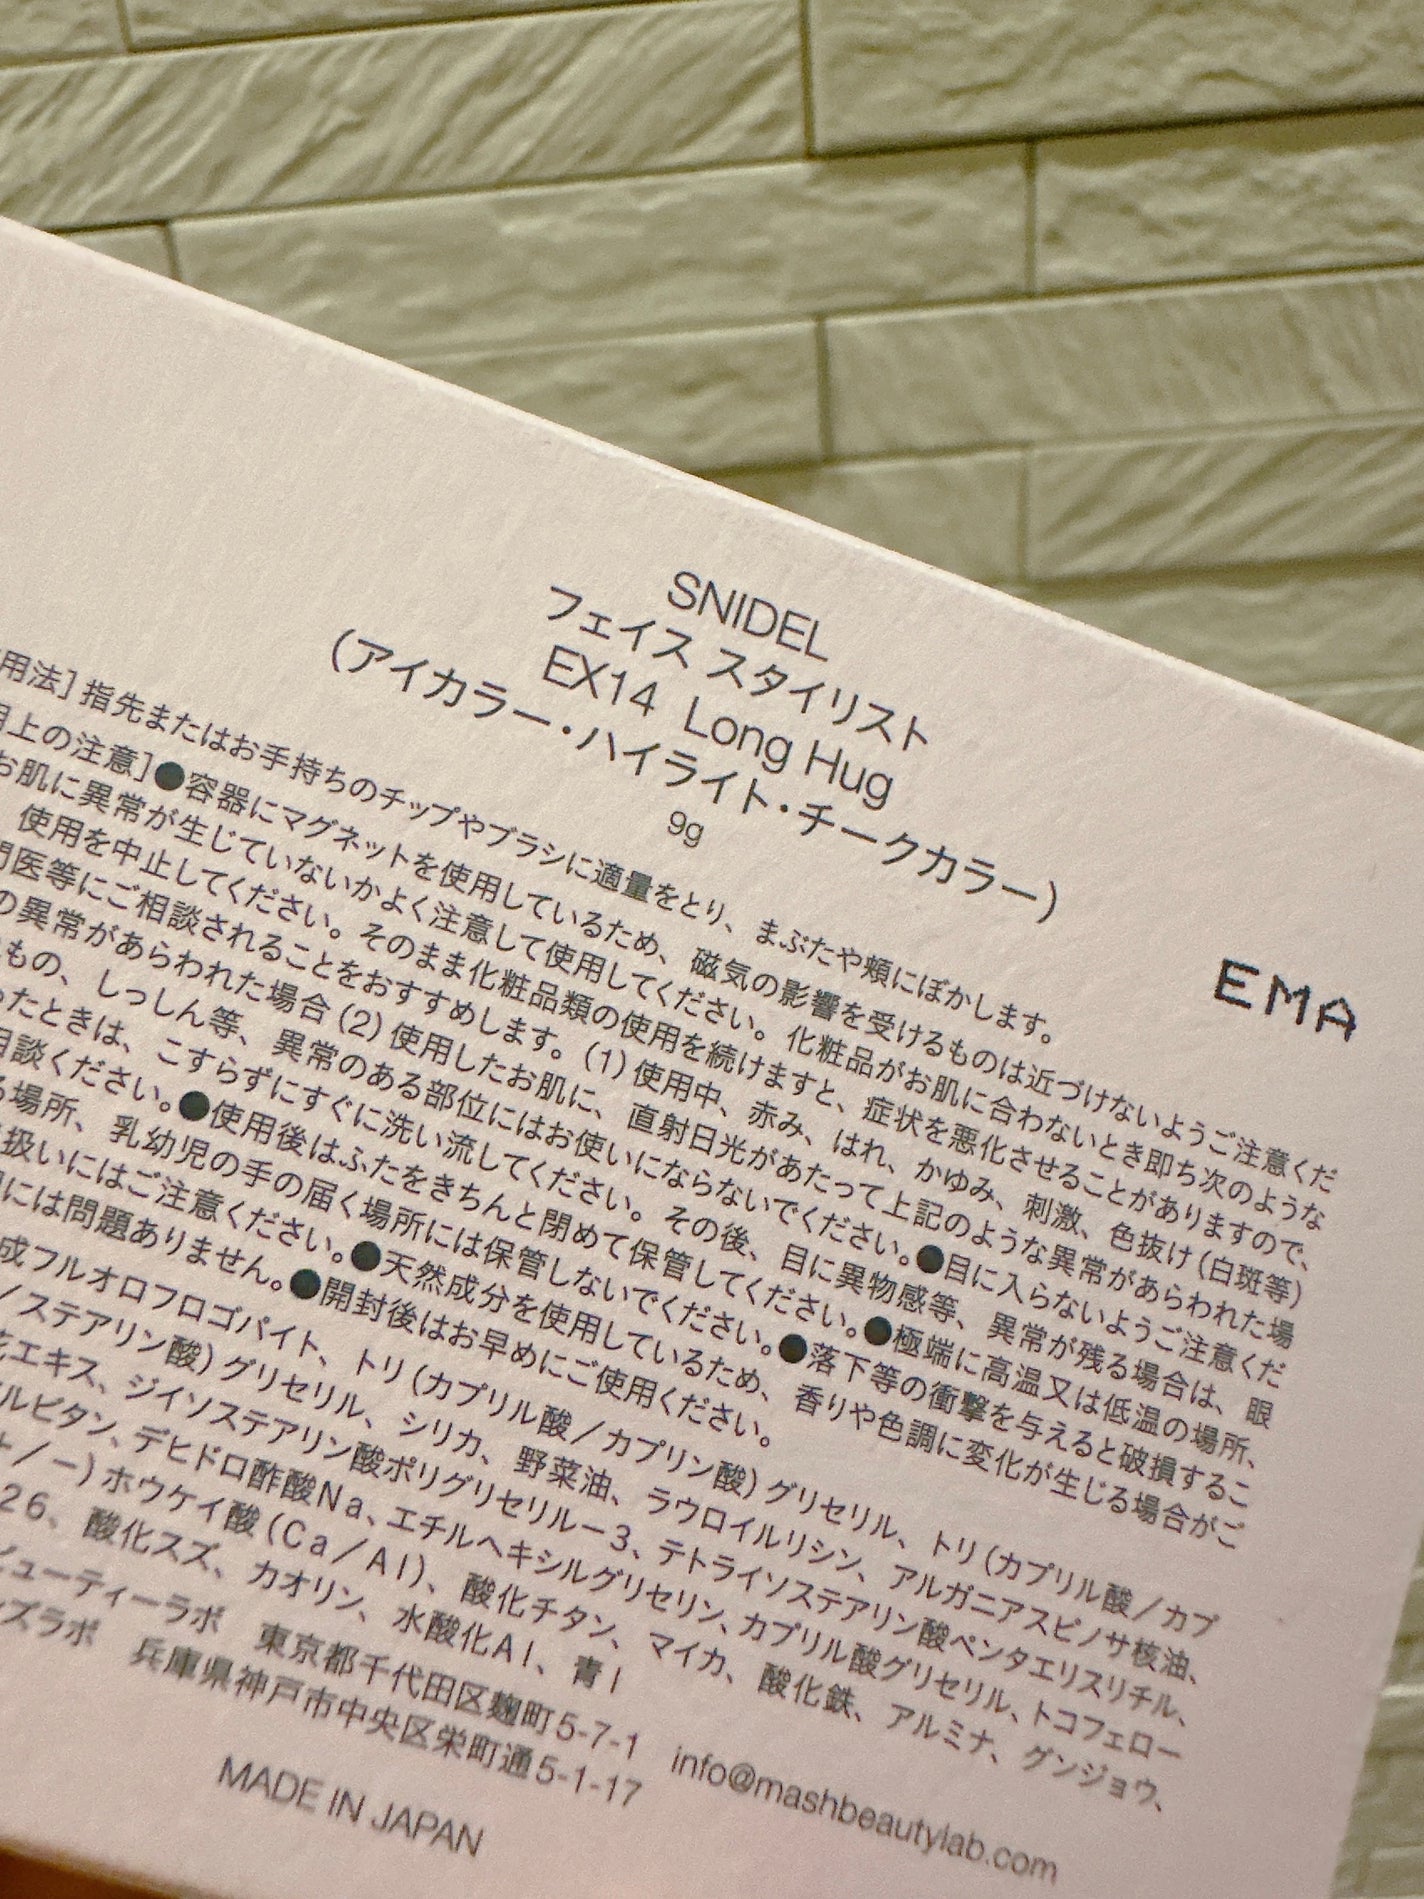 SNIDEL
フェイス スタイリスト
EX14 Long Hug
(アイカラー・ハイライト・チークカラー)
9g
用法] 指先またはお手持ちのチップやブラシに適量をとり、まぶたや頬にぼかします。
用上の注意]●容器にマグネットを使用しているため、磁気の影響を受けるものは近づけないようご注意くだ
お肌に異常が生じていないかよく注意して使用してください。化粧品がお肌に合わないとき即ち次のような
使用を中止してください。そのまま化粧品類の使用を続けますと、症状を悪化させることがありますので、
門医等にご相談されることをおすすめします。(1) 使用中、赤み、はれ、かゆみ、刺激、色抜け(白斑等)
の異常があらわれた場合 (2) 使用したお肌に、直射日光があたって上記のような異常があらわれた場
もの、しっしん等、異常のある部位にはお使いにならないでください。●目に入らないようご注意くだ
ったときは、こすらずにすぐに洗い流してください。その後、目に異物感等、異常が残る場合は、眼
相談ください。●使用後はふたをきちんと閉めて保管してください。●極端に高温又は低温の場所、
る場所、乳幼児の手の届く場所には保管しないでください。●落下等の衝撃を与えると破損するこ
扱いにはご注意ください。●天然成分を使用しているため、香りや色調に変化が生じる場合がご
には問題ありません。●開封後はお早めにご使用ください。
成フルオロフロゴパイト、トリ(カプリル酸/カプリン酸)グリセリル、トリ(カプリル酸/カプ
/ステアリン酸)グリセリル、シリカ、野菜油、ラウロイルリシン、アルガニアスピノサ核油、
花エキス、ジイソステアリン酸ポリグリセリル-3、テトライソステアリン酸ペンタエリスリチル、
ルビタン、デヒドロ酢酸Na、エチルヘキシルグリセリン、カプリル酸グリセリル、トコフェロー
+/-)ホウケイ酸(Ca/Al)、酸化チタン、マイカ、酸化鉄、アルミナ、グンジョウ、
26、酸化スズ、カオリン、水酸化Al、青1
ビューティーラボ 東京都千代田区麹町5-7-1 info@mashbeautylab.com
ズラボ 兵庫県神戸市中央区栄町通5-1-17
MADE IN JAPAN
EMA